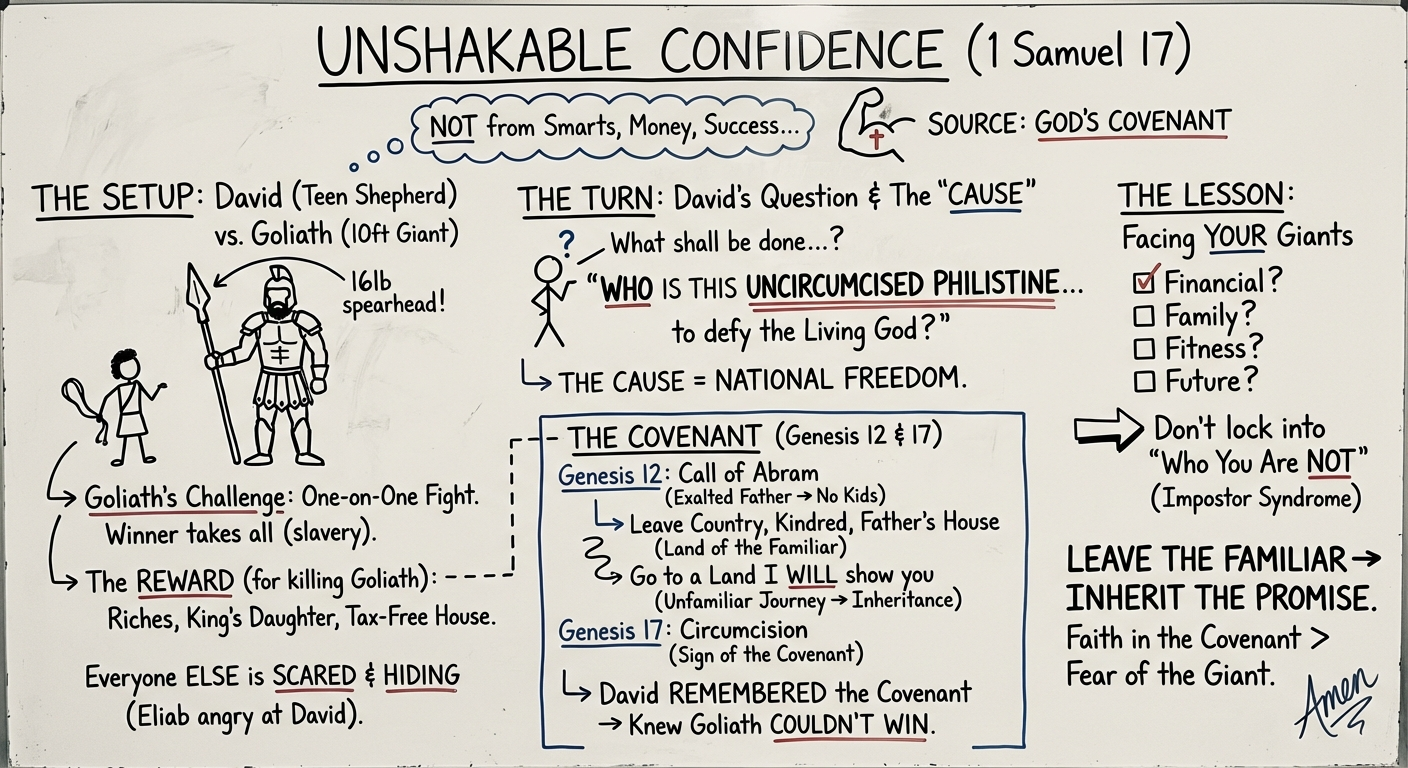 UNSHAKABLE CONFIDENCE (1 Samuel 17)
NOT from Smarts, Money, Success...
SOURCE: GOD'S COVENANT
THE SETUP: David (Teen Shepherd)
vs. Goliath (10ft Giant)
16lb
spearhead!
Goliath's Challenge: One-on-One Fight.
Winner takes all (slavery).
The REWARD (for killing Goliath):
Riches, King's Daughter, Tax-Free House.
Everyone ELSE is SCARED & HIDING
(Eliab angry at David).
THE TURN: David's Question & The "CAUSE"
?
What shall be done...?
"WHO IS THIS UNCIRCUMCISED PHILISTINE...
to defy the Living God?"
THE CAUSE = NATIONAL FREEDOM.
THE COVENANT (Genesis 12 & 17)
Genesis 12: Call of Abram
(Exalted Father → No Kids)
Leave Country, Kindred, Father's House
(Land of the Familiar)
Go to a Land I WILL show you
(Unfamiliar Journey → Inheritance)
Genesis 17: Circumcision
(Sign of the Covenant)
David REMEMBERED the Covenant
→ Knew Goliath COULDN'T WIN.
THE LESSON:
Facing YOUR Giants
Financial?
Family?
Fitness?
Future?
Don't lock into
"Who You Are NOT"
(Impostor Syndrome)
LEAVE THE FAMILIAR →
INHERIT THE PROMISE.
Faith in the Covenant >
Fear of the Giant.
Amen